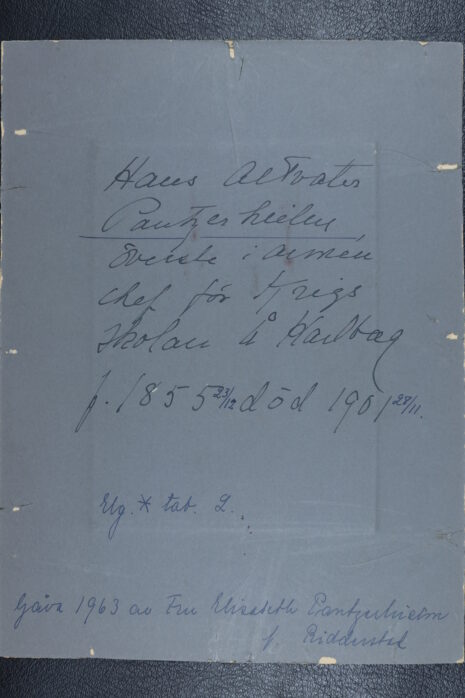 Hans Altvater
Pantzerhielm
överste i armén
chef för Krigs
skolan å Karlberg
f. 1855 23/12 död 1901 28/11.
Elg. * tab. 2.
Gåva 1963 av Fru Elisabeth Pantzerhielm
f. Ridderstad